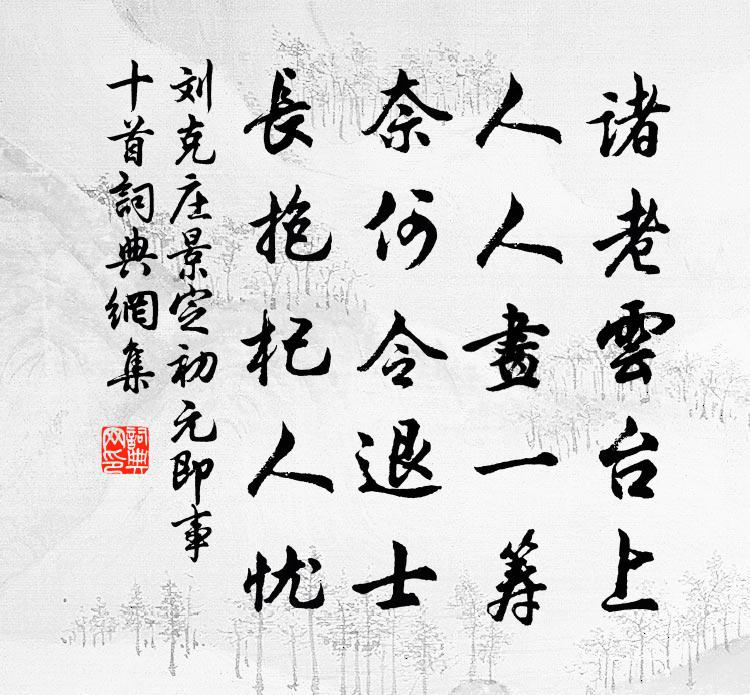 诸老雲台上
人人畫一筹
奈何令退士
長抱杞人忧
刘克庄景定初元即事
十首詞典網集
詞典
网印